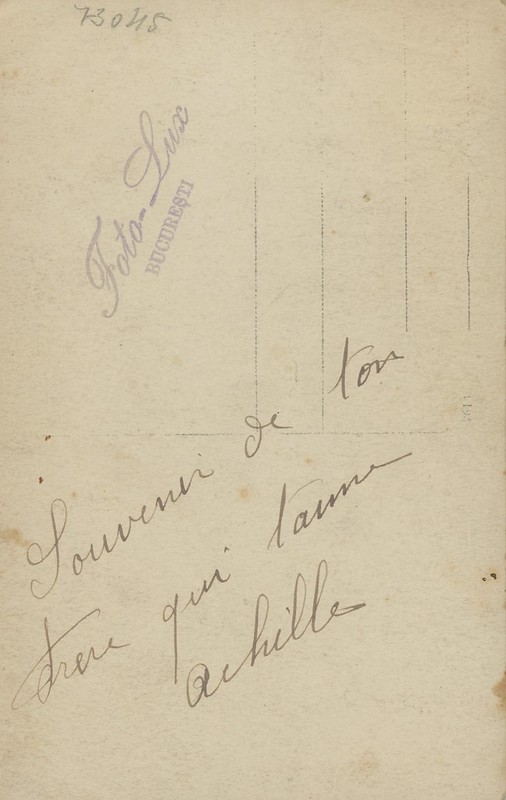 73045
Foto-Lux
BUCUREȘTI
Souvenir de ton
frere qui t'aime
Achille